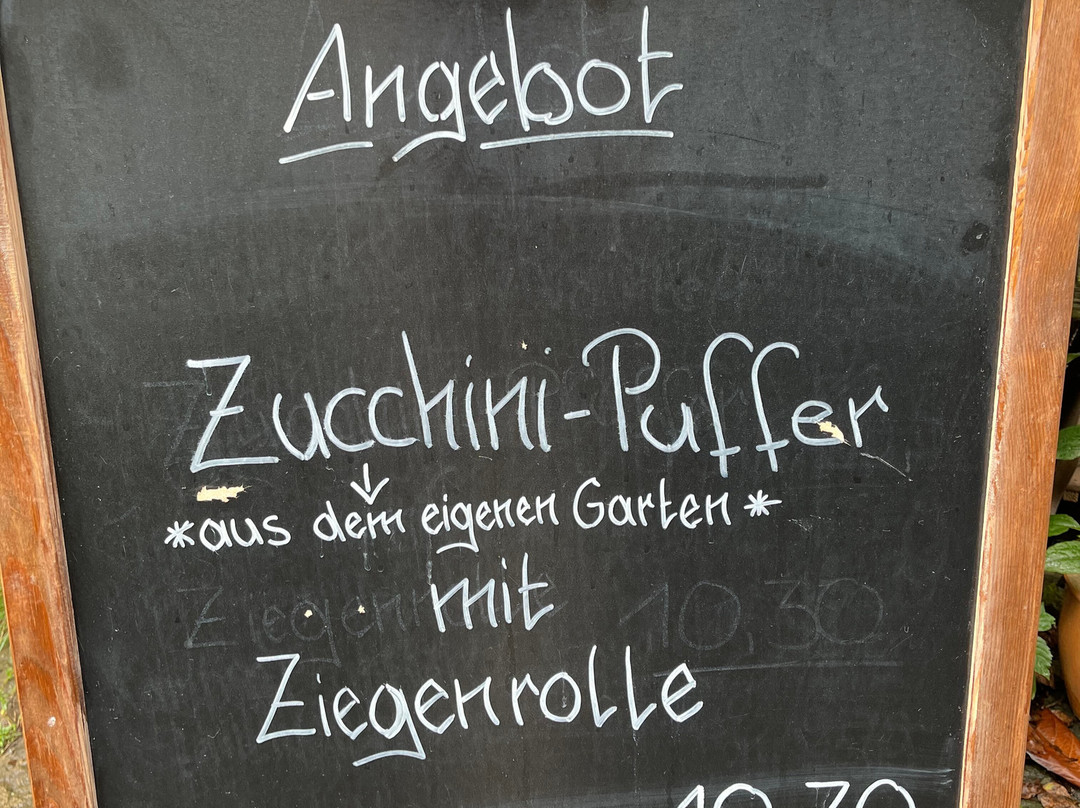 Angebot
Zucchini-Puffer
*aus dem eigenen Garten*
mit
Ziegenrolle